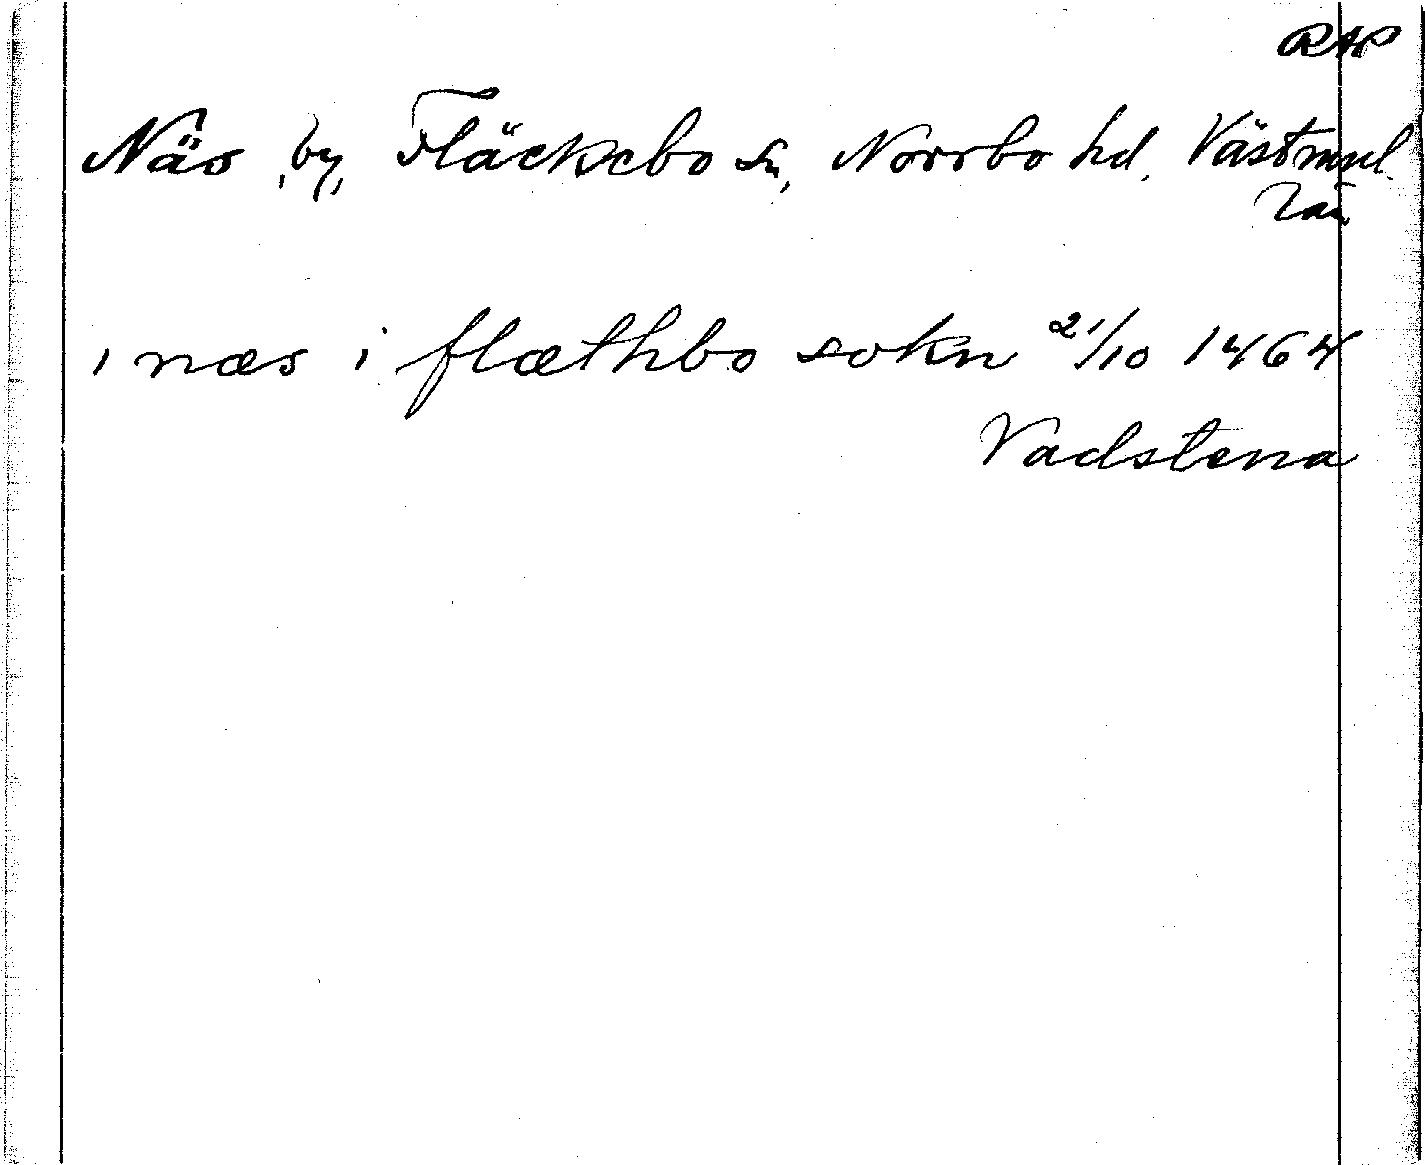 RAP
Näs, by, Fläckebo sn, Norrbo hd. Västmnl.
län
i næs i flæthbo sokn 21/10 1464
Vadstena